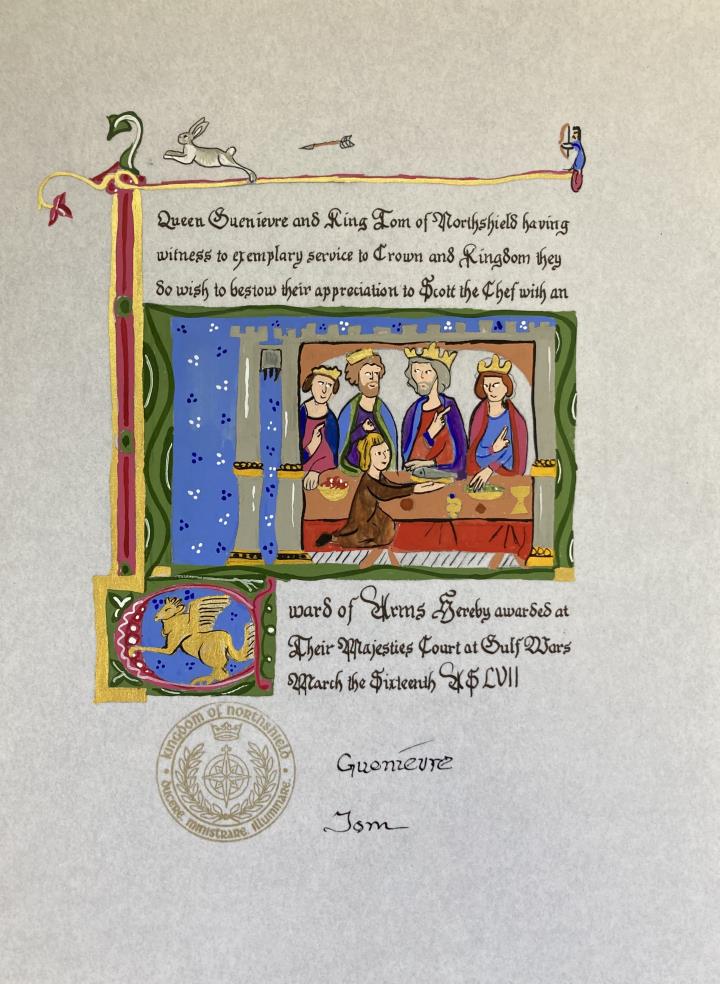 Queen Guenievre and King Tom of Northshield having
witness to exemplary service to Crown and Kingdom they
do wish to bestow their appreciation to Scott the Chef with an
A
ward of Arms Hereby awarded at
Their Majesties Court at Gulf Wars
March the Sixteenth AS LVII
Kingdom of Northshield
Ducere, Ministrare, Illuminare.
Guenievre
Tom